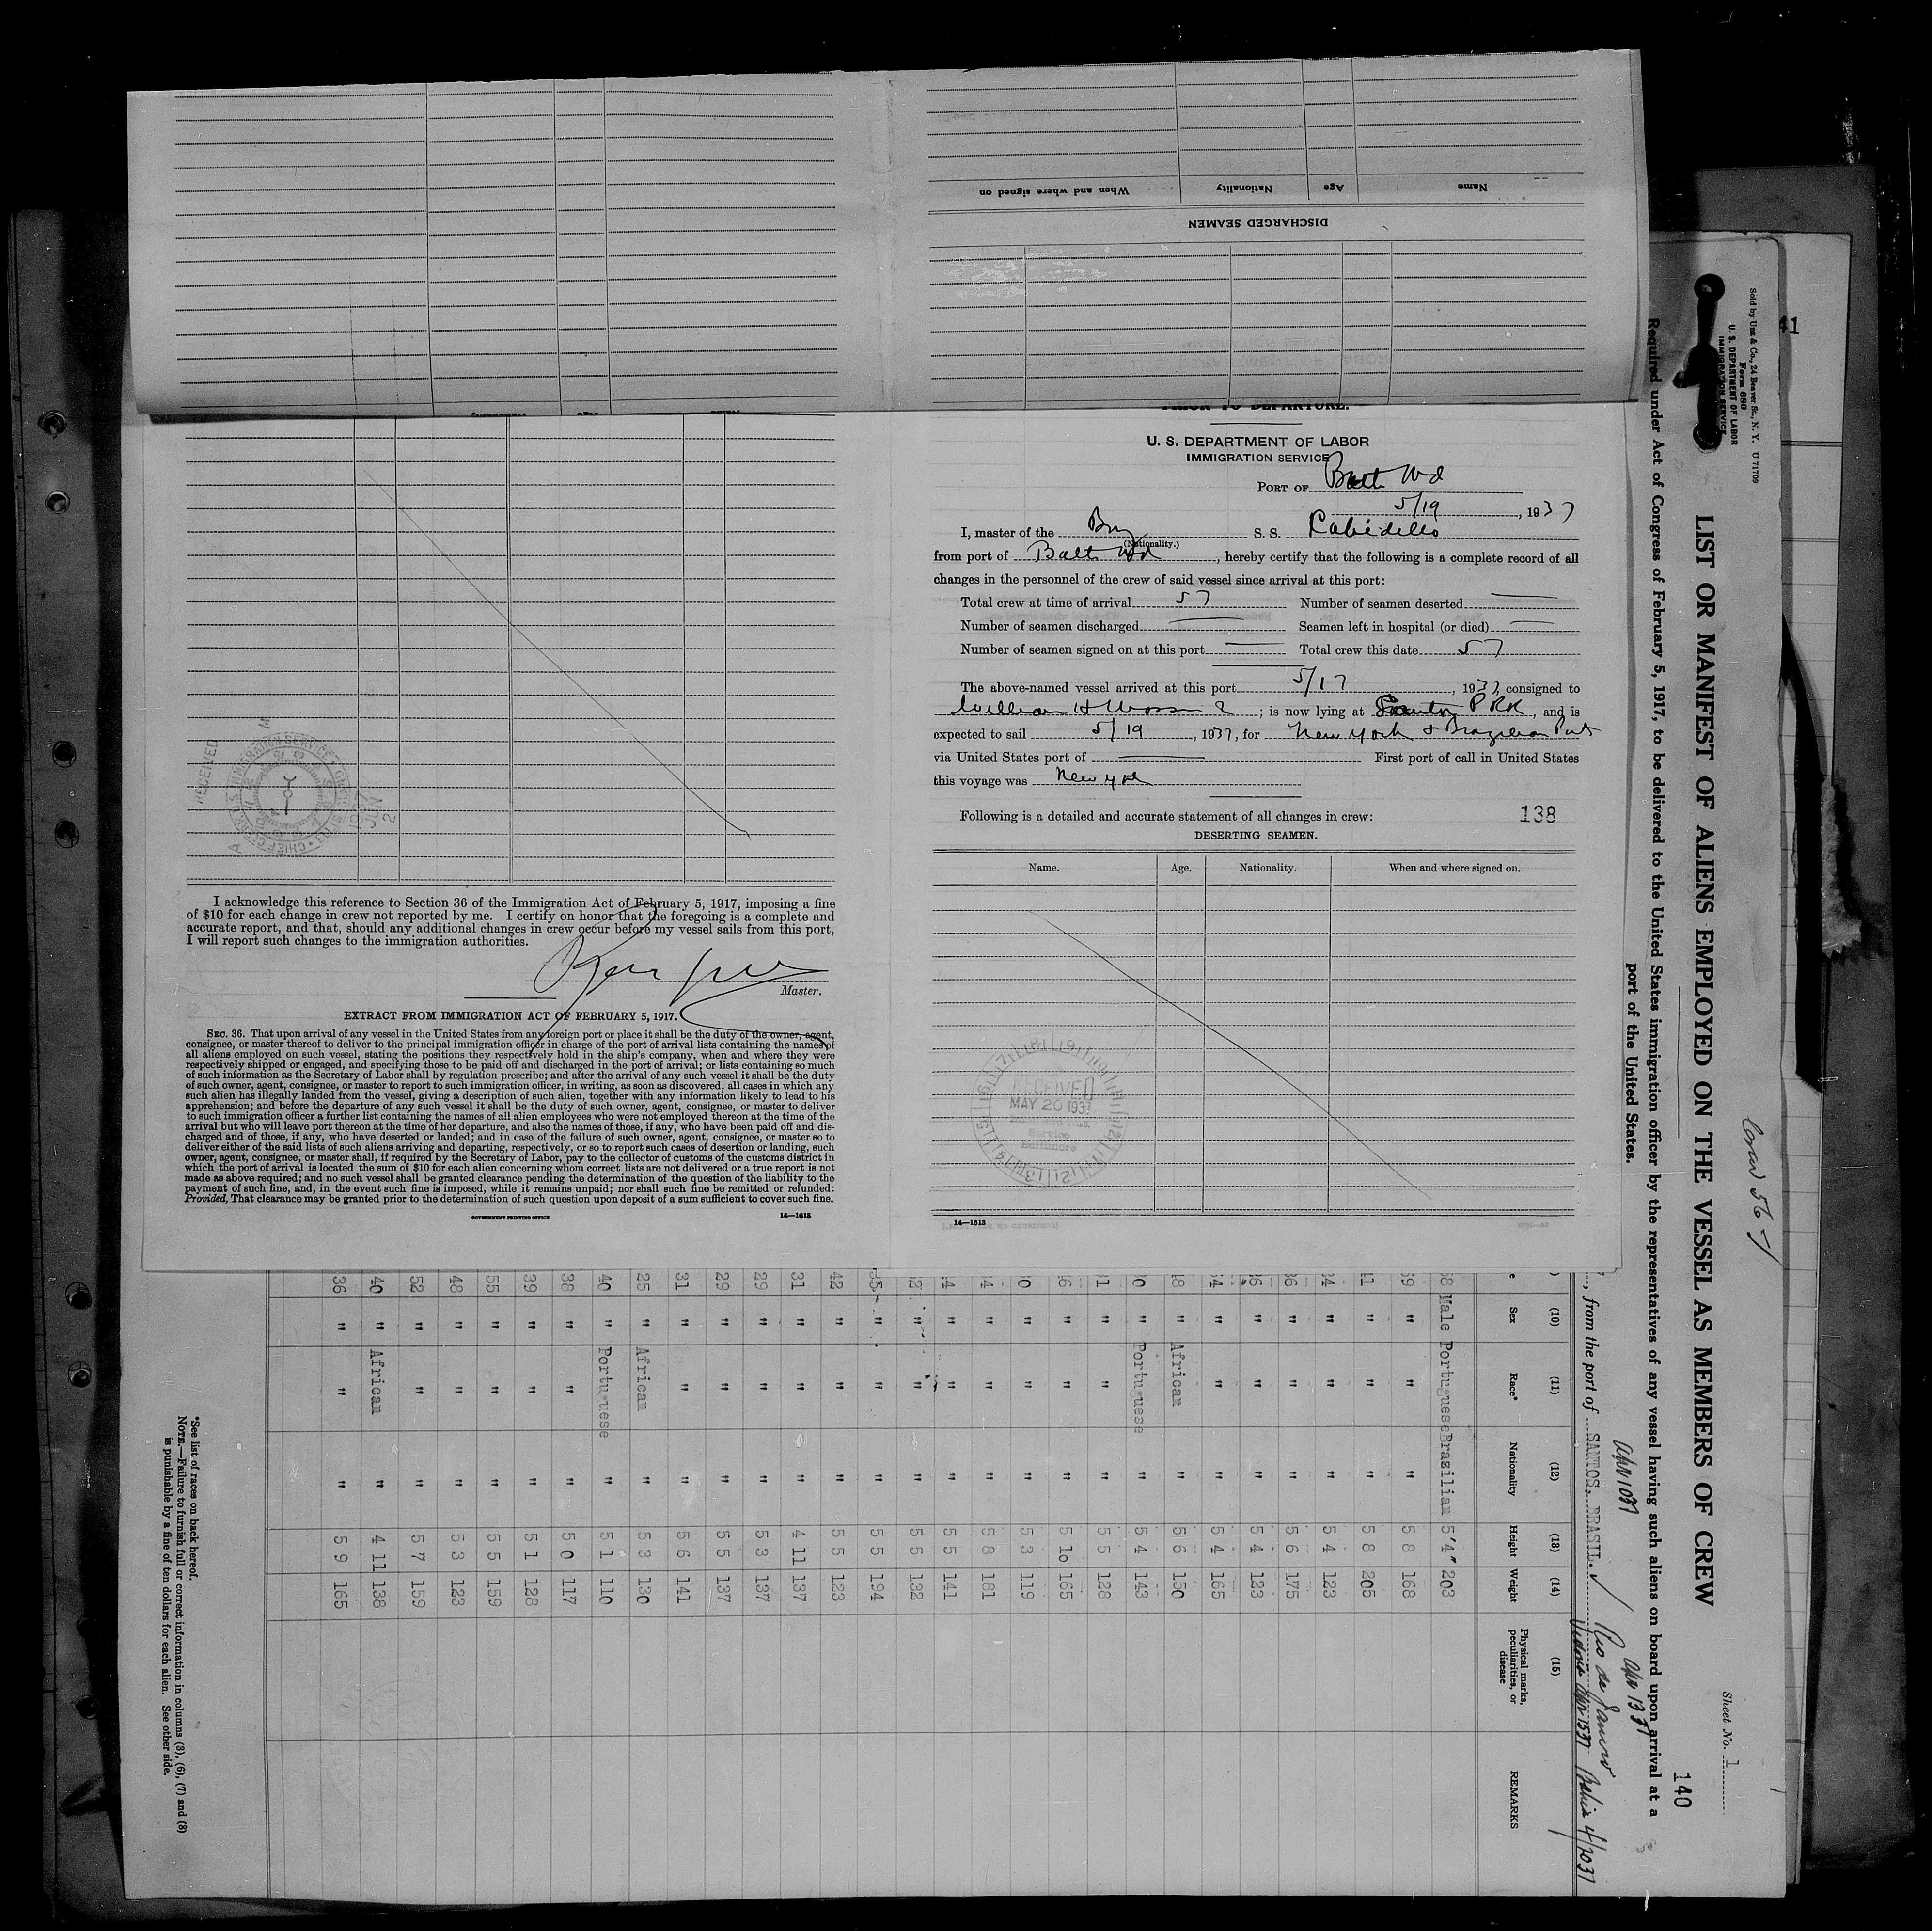 Name
Age
Nationality
When and where signed on
DISCHARGED SEAMEN
PRIOR TO DEPARTURE.
U. S. DEPARTMENT OF LABOR
IMMIGRATION SERVICE
PORT OF Balto Md
5/19, 1937
I, master of the Brz S. S. Cabedello
(Nationality.)
from port of Balto Md, hereby certify that the following is a complete record of all
changes in the personnel of the crew of said vessel since arrival at this port:
Total crew at time of arrival 57 Number of seamen deserted —
Number of seamen discharged — Seamen left in hospital (or died) —
Number of seamen signed on at this port — Total crew this date 57
The above-named vessel arrived at this port 5/17, 1937, consigned to
William H ; is now lying at , and is
expected to sail 5/19, 1937, for New York & Brazilian Ports
via United States port of — First port of call in United States
this voyage was New York
Following is a detailed and accurate statement of all changes in crew: 138
DESERTING SEAMEN.
Name. Age. Nationality. When and where signed on.
RECEIVED
MAY 20 1937
Service
Baltimore
14—1613
RECEIVED
U.S. IMMIGRATION SERVICE
1937 JUN 2
I acknowledge this reference to Section 36 of the Immigration Act of February 5, 1917, imposing a fine
of $10 for each change in crew not reported by me. I certify on honor that the foregoing is a complete and
accurate report, and that, should any additional changes in crew occur before my vessel sails from this port,
I will report such changes to the immigration authorities.
Master.
EXTRACT FROM IMMIGRATION ACT OF FEBRUARY 5, 1917.
SEC. 36. That upon arrival of any vessel in the United States from any foreign port or place it shall be the duty of the owner, agent,
consignee, or master thereof to deliver to the principal immigration officer in charge of the port of arrival lists containing the names of
all aliens employed on such vessel, stating the positions they respectively hold in the ship's company, when and where they were
respectively shipped or engaged, and specifying those to be paid off and discharged in the port of arrival; or lists containing so much
of such information as the Secretary of Labor shall by regulation prescribe; and after the arrival of any such vessel it shall be the duty
of such owner, agent, consignee, or master to report to such immigration officer, in writing, as soon as discovered, all cases in which any
such alien has illegally landed from the vessel, giving a description of such alien, together with any information likely to lead to his
apprehension; and before the departure of any such vessel it shall be the duty of such owner, agent, consignee, or master to deliver
to such immigration officer a further list containing the names of all alien employees who were not employed thereon at the time of the
arrival but who will leave port thereon at the time of her departure, and also the names of those, if any, who have been paid off and dis-
charged and of those, if any, who have deserted or landed; and in case of the failure of such owner, agent, consignee, or master so to
deliver either of the said lists of such aliens arriving and departing, respectively, or so to report such cases of desertion or landing, such
owner, agent, consignee, or master shall, if required by the Secretary of Labor, pay to the collector of customs of the customs district in
which the port of arrival is located the sum of $10 for each alien concerning whom correct lists are not delivered or a true report is not
made as above required; and no such vessel shall be granted clearance pending the determination of the question of the liability to the
payment of such fine, and, in the event such fine is imposed, while it remains unpaid; nor shall such fine be remitted or refunded:
Provided, That clearance may be granted prior to the determination of such question upon deposit of a sum sufficient to cover such fine.
GOVERNMENT PRINTING OFFICE 14—1613
41
Sold by Unz & Co., 24 Beaver St., N. Y. U 71709
Form 680
U. S. DEPARTMENT OF LABOR
IMMIGRATION SERVICE
Sheet No. 1
140
LIST OR MANIFEST OF ALIENS EMPLOYED ON THE VESSEL AS MEMBERS OF CREW
Required under Act of Congress of February 5, 1917, to be delivered to the United States immigration officer by the representatives of any vessel having such aliens on board upon arrival at a
port of the United States.
, from the port of SANTOS, BRASIL. ✓ Apr 10 37
Rio de Janeiro Apr 13 37
Victoria Apr 15 37 Bahia 4/20 37
(10) (11) (12) (13) (14) (15)
Sex Race* Nationality Height Weight Physical marks, peculiarities, or disease REMARKS
58 Male Portuguese Brazilian 5'4" 203
59 " " " 5 8 168
41 " " " 5 8 205
34 " " " 5 4 123
36 " " " 5 6 175
36 " " " 5 4 123
34 " " " 5 4 165
48 " African " 5 6 150
30 " Portuguese " 5 4 143
31 " " " 5 5 128
36 " " " 5 10 165
0 " " " 5 3 119
4 " " " 5 8 181
4 " " " 5 5 141
27 " " " 5 5 132
35 " " " 5 5 194
42 " " " 5 5 123
31 " " " 4 11 137
29 " " " 5 3 137
29 " " " 5 5 137
31 " " " 5 6 141
25 " African " 5 3 130
40 " Portuguese " 5 1 110
38 " " " 5 0 117
39 " " " 5 1 128
55 " " " 5 5 159
48 " " " 5 3 123
52 " " " 5 7 159
40 " African " 4 11 138
36 " " " 5 9 165
*See list of races on back hereof.
NOTE.—Failure to furnish full or correct information in columns (3), (6), (7) and (8)
is punishable by a fine of ten dollars for each alien. See other side.